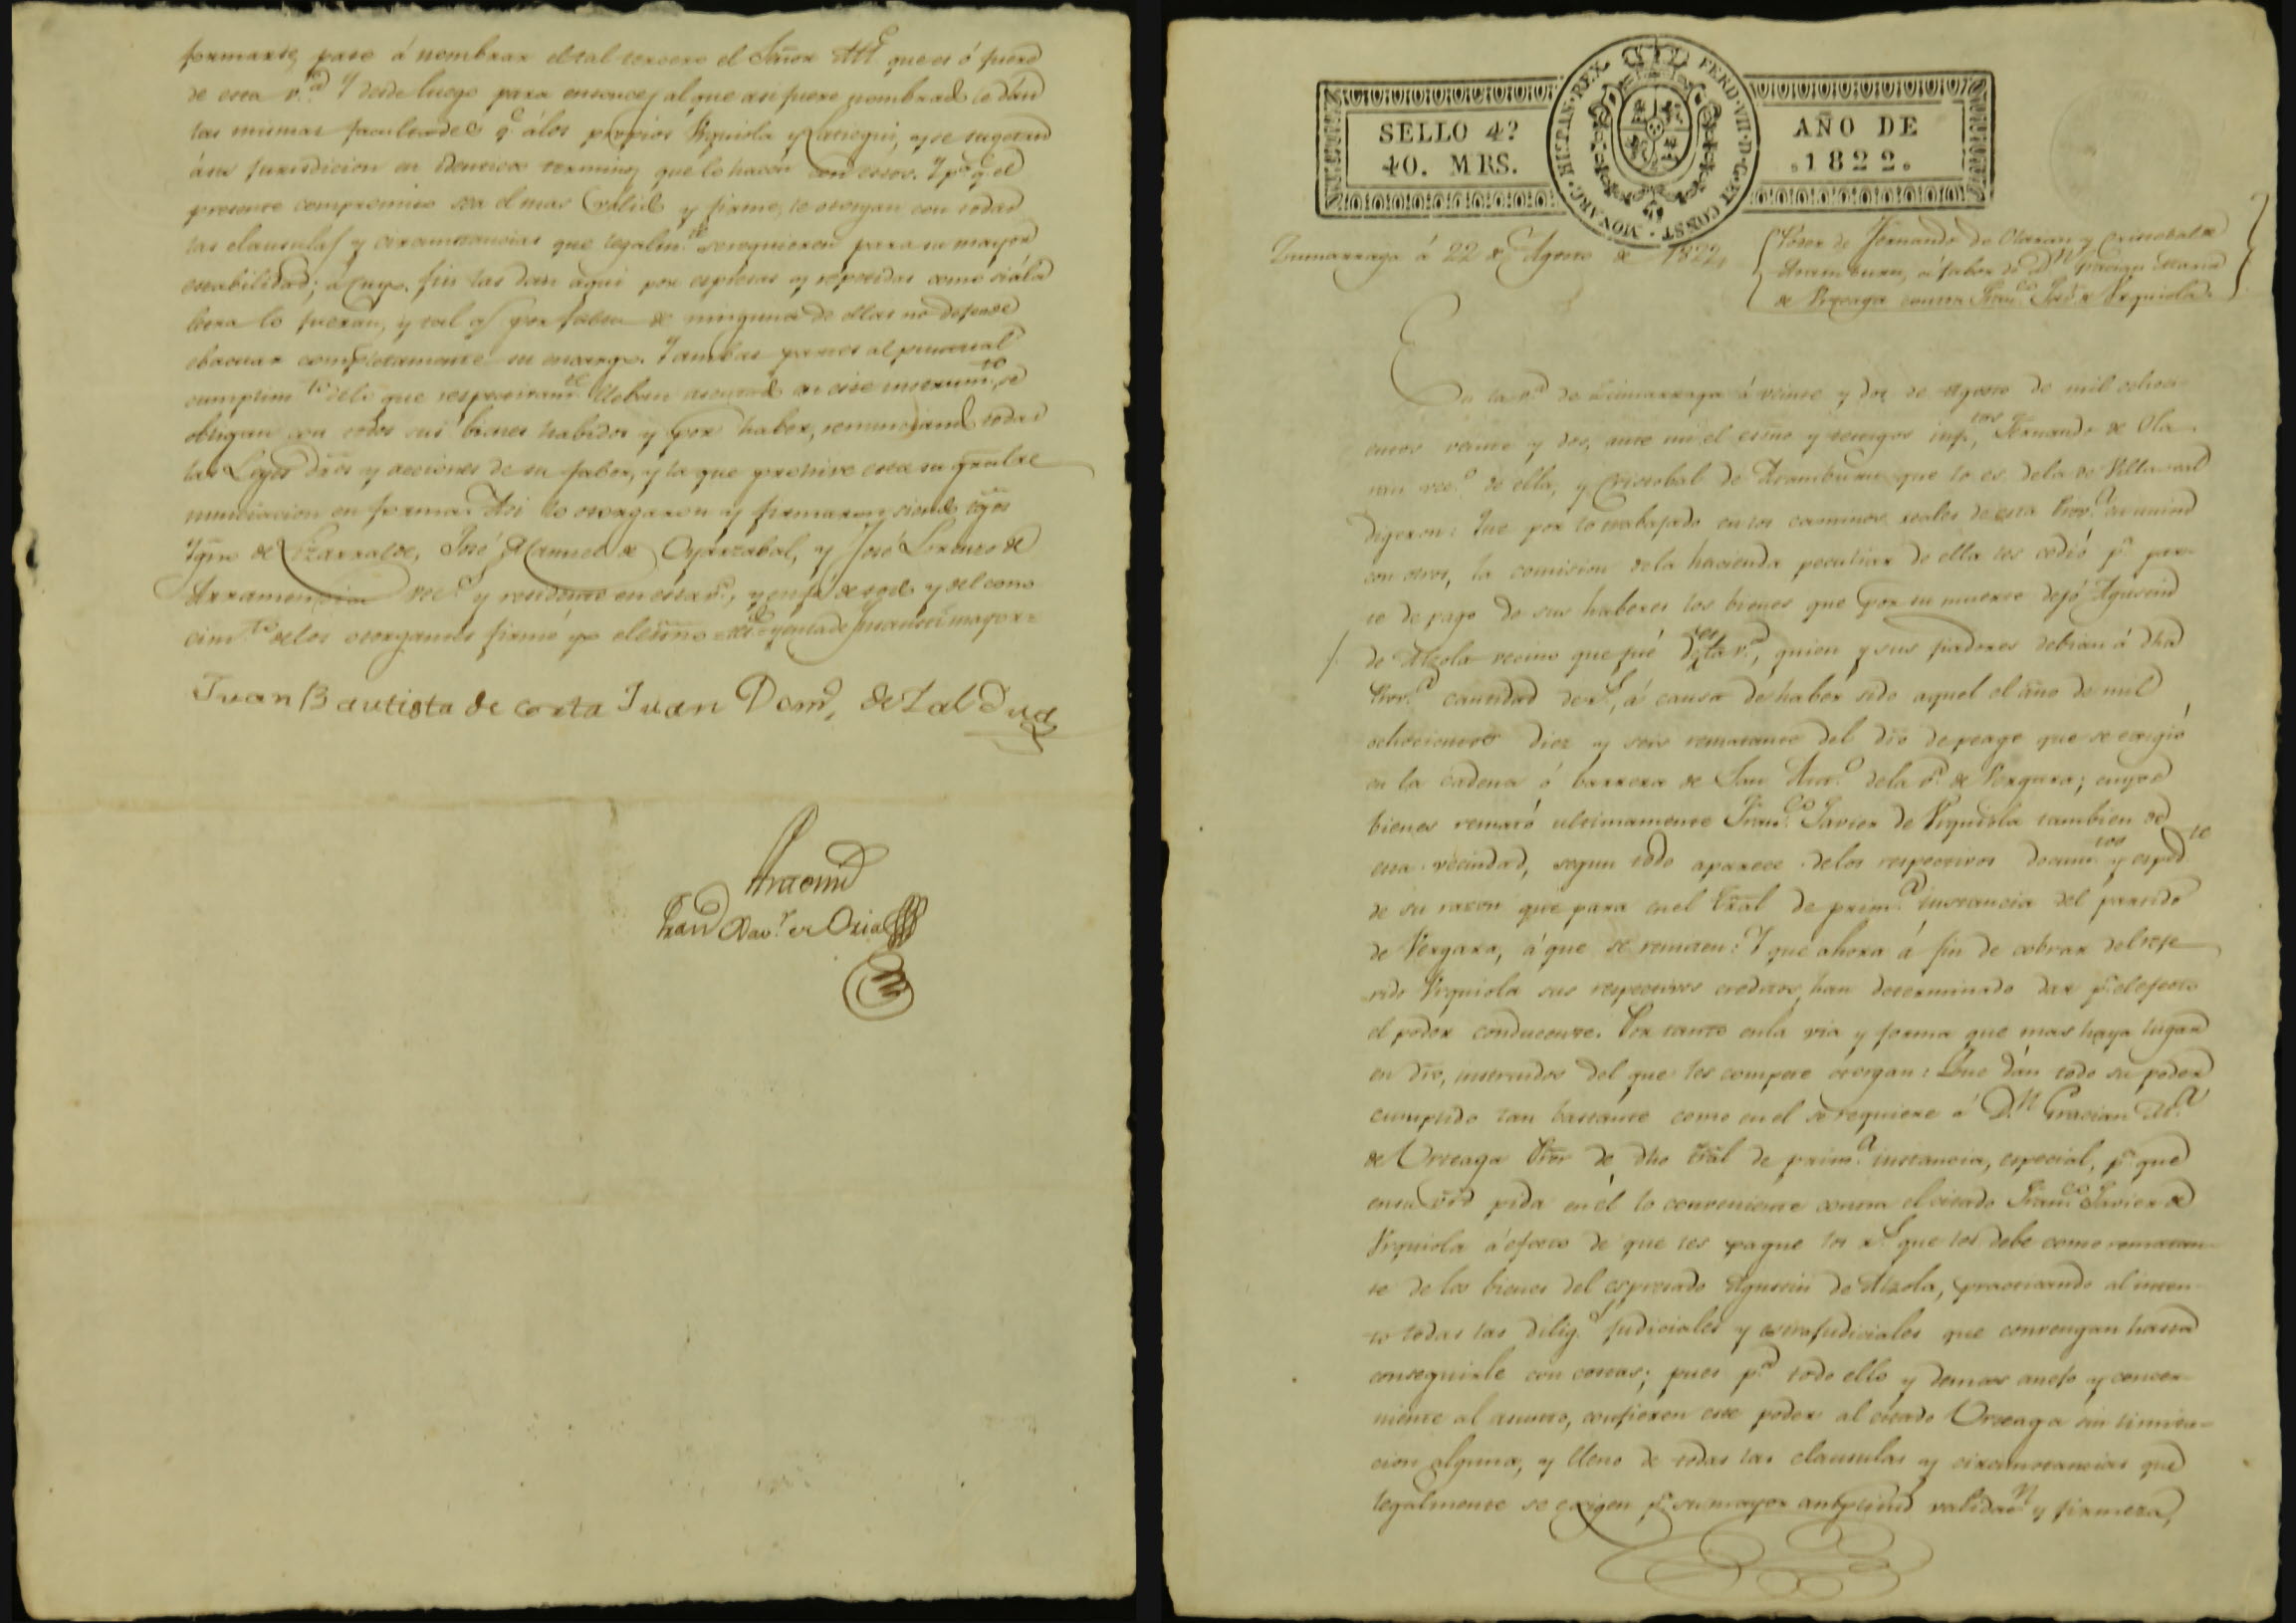 formarse, pase á nombrar el tal tercero el Señor Alc.e que es ó fuere
de esta v.a Y desde luego para entonces al que asi fuere nombrado le dán
las mismas facultades q.e á los propios Urquiola y, y se sugetan
á su jurisdicion en identicos terminos que lo hacen con estos. Y p.a q.e el
presente compromiso sea el mas valido y firme, le otorgan con todas
las clausulas y circunstancias que legalm.te se requieren para su mayor
estabilidad; á cuyo fin las dan aqui por espresas y repetidas como si á la
letra lo fueran, y tal q.e por falta de ninguna de ellas no dejen de
ebacuar completamente su encargo. Y ambas partes al puntual
cumplim.to de lo que respectivam.te lleban asentado en este instrum.to, se
obligan con todos sus bienes habidos y por haber, renunciando todas
las Leyes dros y acciones de su fabor, y la que prohive esta su gral re
nunciacion en forma. Asi lo otorgaron y firmaron siendo tgos
Ygn.o de Lizarralde, José Manuel de Oyarzabal, y José Lorenzo de
Arramendia vec.s y residente en esta v.a, y en fé de todo y del cono
cim.to de los otorgantes firmé yo el esno =
Juan Bautista de corta Juan Dom.o de Zaldua
Ante mi
Fran.co Xav.r de Oria
SELLO 4.º
40. MRS.
HISPAN·REX· FERD·VII·D·G·ET CONST·MONARC·
AÑO DE
.1822.
Zumarraga á 22 de Agosto de 1822,
Poder de Fernando de Olaran y Cristobal de
Aramburu, á fabor de D.n Gracian Maria
de Urteaga contra Fran.co Jav.r de Urquiola.
En la v.a de Zumarraga á veinte y dos de Agosto de mil ochoci-
entos veinte y dos, ante mi el esno y testigos inf.tos Fernando de Ola-
ran vec.o de ella, y Cristobal de Aramburu que lo es de la de Villarreal
digeron: Que por lo trabajado en los caminos reales de esta Prov.a en union
con otros, la comision de la hacienda peculiar de ella les cedió p.a par-
te de pago de sus haberes los bienes que por su muerte dejó Agustin
de Alzola vecino que fué de esta v.a, quien y sus fiadores debian á dha
Prov.a cantidad de r.s, á causa de haber sido aquel el año de mil
ochocientos diez y seis rematante del dro de peage que se exigió
en la cadena ó barrera de San Ant.o de la v.a de Vergara; cuyos
bienes remató ultimamente Fran.co Javier de Urquiola tambien de
esta vecindad, segun todo aparece de los respectivos docum.tos y esped.te
de su razon que para en el tral de prim.a instancia del partido
de Vergara, á que se remiten: Y que ahora á fin de cobrar del refe
rido Urquiola sus respectivos creditos, han determinado dar p.a el efecto
el poder conducente. Por tanto en la via y forma que mas haya lugar
en dro, instruidos del que les compete otorgan: Que dán todo su poder
cumplido tan bastante como en el se requiere á D.n Gracian M.a
de Urteaga Pror de dho tral de prim.a instancia, especial, p.a que
en su pida en él lo conveniente contra el citado Fran.co Javier de
Urquiola á efecto de que les pague los r.s que les debe como rematan-
te de los bienes del espresado Agustin de Alzola, practicando al inten-
to todas las dilig.s judiciales y extrajudiciales que convengan hasta
conseguirle con costas; pues p.a todo ello y demas anejo y concer-
niente al asunto, confieren este poder al citado Urteaga sin limita-
cion alguna, y lleno de todas las clausulas y circunstancias que
legalmente se exigen p.a su mayor amplitud validac.n y firmeza,